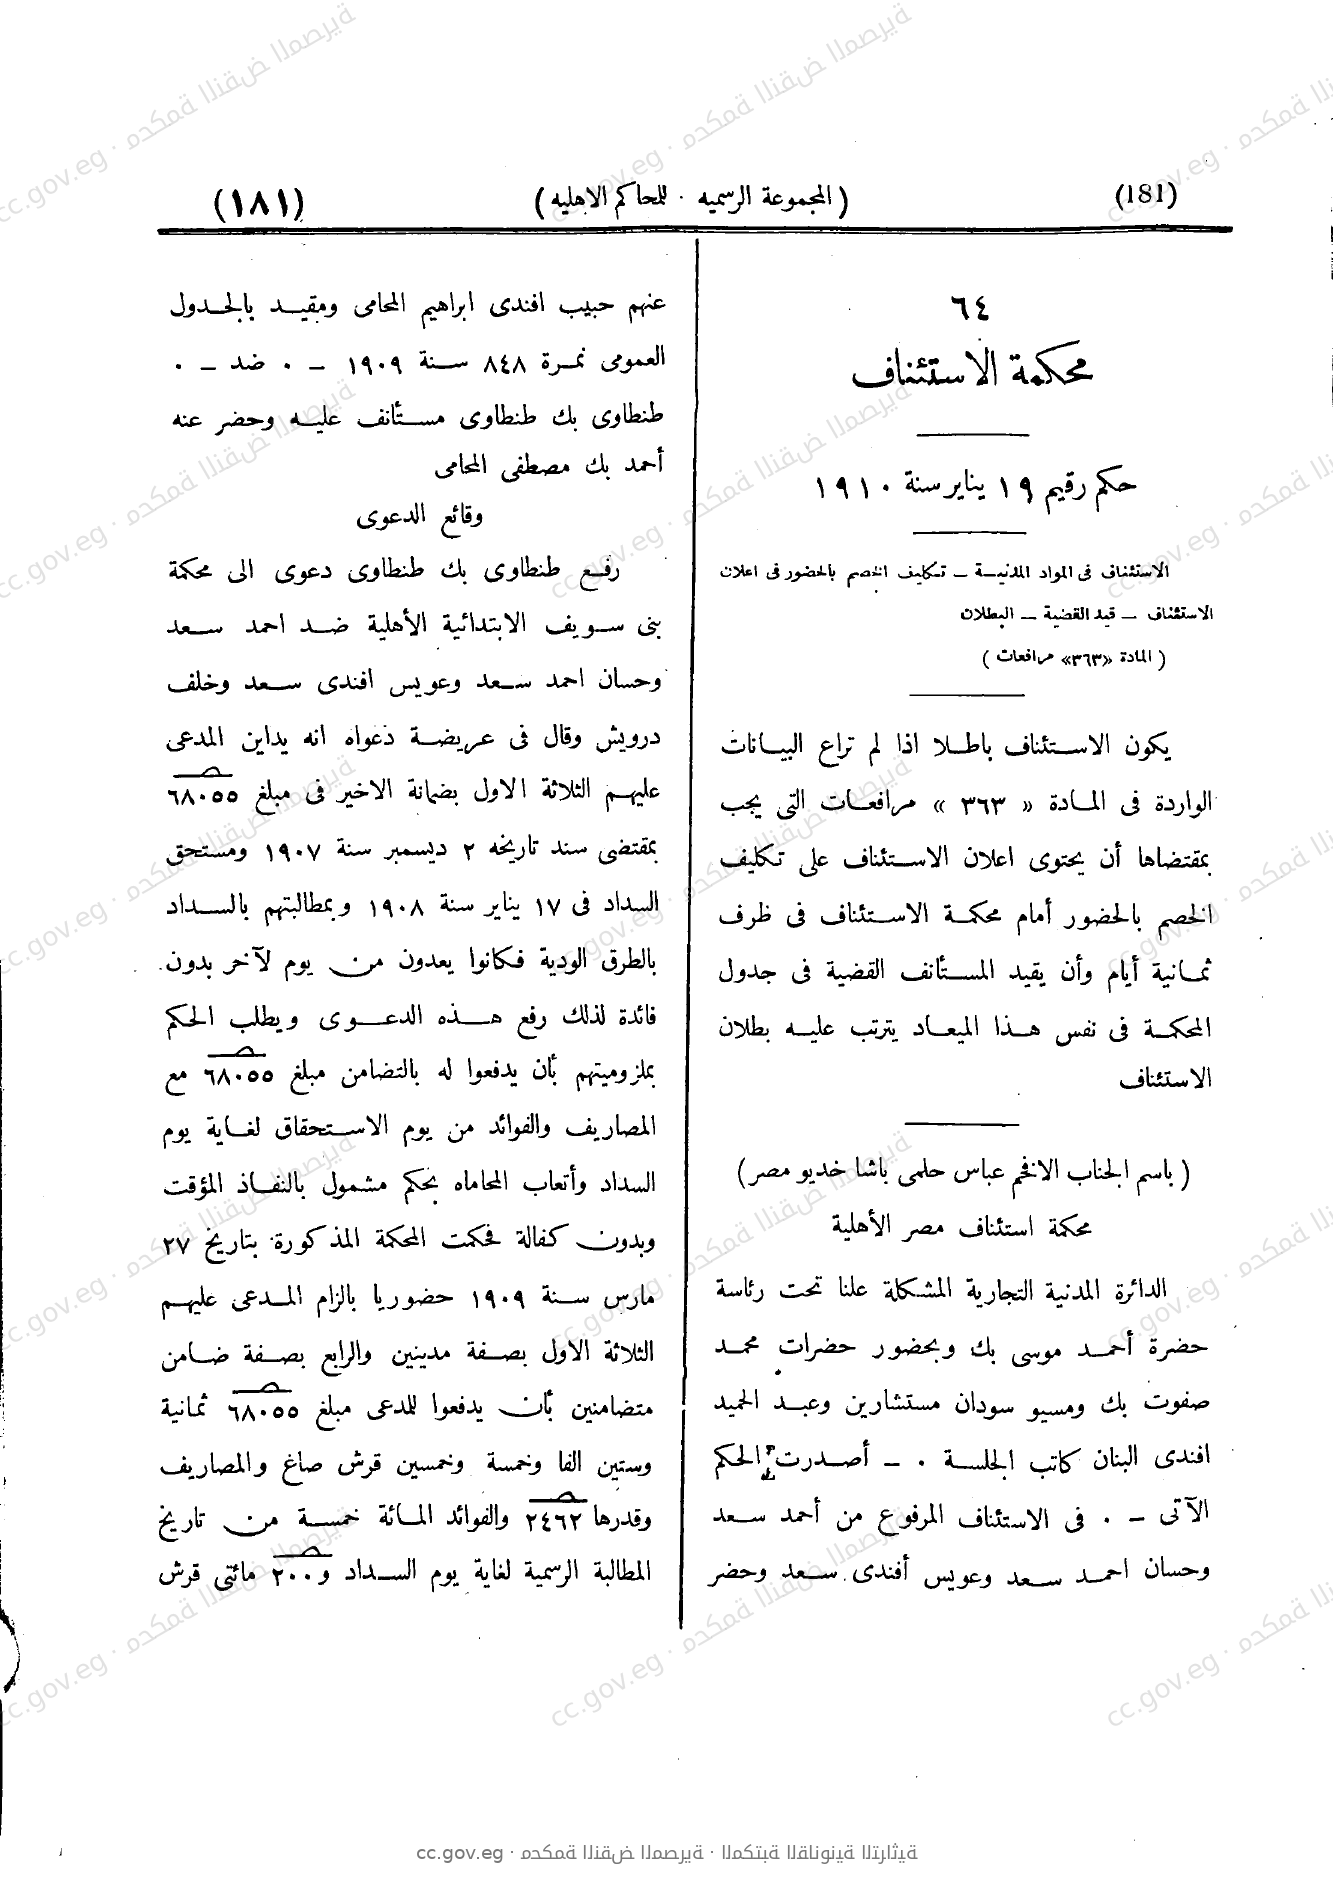 (181)
( المجموعة الرسميه ٠ للمحاكم الاهليه )
(١٨١)
٦٤
محكمة الاستئناف
حكم رقيم ١٩ يناير سنة ١٩١٠
الاستئناف فى المواد المدنيــة ــ تكليف الخصم بالحضور فى اعلان
الاستئناف ــ قيد القضية ــ البطلان
( المادة «٣٦٣» مرافعات )
يكون الاســتئناف باطــلا اذا لم تراع البيــانات
الواردة فى المــادة « ٣٦٣ » مرافعــات التى يجب
بمقتضاها أن يحتوى اعلان الاســتئناف على تكليف
الخصم بالحضور أمام محكمــة الاســتئناف فى ظرف
ثمــانية أيام وأن يقيد المســتأنف القضية فى جدول
المحكمــة فى نفس هــذا الميعــاد يترتب عليــه بطلان
الاستئناف
( باسم الجناب الافخم عباس حلمى باشا خديو مصر )
محكمة استئناف مصر الأهلية
الدائرة المدنية التجارية المشكلة علنا تحت رئاسة
حضرة أحمــد موسى بك وبحضور حضرات محمــد
صفوت بك ومسيو سودان مستشارين وعبــد الحميد
افندى البنان كاتب الجلســة ٠ ــ أصــدرت الحكم
الآتى ــ ٠ فى الاستئناف المرفوع من أحمد ســعد
وحسان احمــد ســعد وعويس أفندى ســعد وحضر
عنهم حبيب افندى ابراهيم المحامى ومقيــد بالجــدول
العمومى نمــرة ٨٤٨ ســنة ١٩٠٩ ــ ٠ ضد ــ ٠
طنطاوى بك طنطاوى مســتأنف عليــه وحضر عنه
أحمد بك مصطفى المحامى
وقائع الدعوى
رفــع طنطاوى بك طنطاوى دعوى الى محكمة
بنى ســويف الابتدائية الأهلية ضــد احمد ســعد
وحسان احمد ســعد وعويس افندى ســعد وخلف
درويش وقال فى عريضــة دعواه انه يداين المدعى
عليهــم الثلاثة الاول بضمانة الاخير فى مبلغ ٦٨٠٥٥
بمقتضى سند تاريخه ٢ ديسمبر سنة ١٩٠٧ ومستحق
السداد فى ١٧ يناير سنة ١٩٠٨ وبمطالبتهم بالســداد
بالطرق الودية فكانوا يعدون من يوم لآخر بدون
فائدة لذلك رفع هــذه الدعــوى ويطلب الحكم
بملزوميتهم بأن يدفعوا له بالتضامن مبلغ ٦٨٠٥٥ مع
المصاريف والفوائد من يوم الاســتحقاق لغــاية يوم
السداد وأتعاب المحاماه بحكم مشمول بالنفــاذ المؤقت
وبدون كفالة فحكمت المحكمة المذكورة بتاريخ ٢٧
مارس ســنة ١٩٠٩ حضوريا بالزام المــدعى عليهــم
الثلاثة الاول بصــفة مدينين والرابع بصــفة ضــامن
متضامنين بأن يدفعوا للمدعى مبلغ ٦٨٠٥٥ ثمانية
وستين الفا وخمسة وخمسين قرش صاغ والمصاريف
وقدرها ٢٤٦٢ والفوائد المــائة خمســة من تاريخ
المطالبة الرسمية لغاية يوم الســداد و٢٠٠ مائتى قرش
cc.gov.eg · محكمة النقض المصرية · المكتبة القانونية التراثية